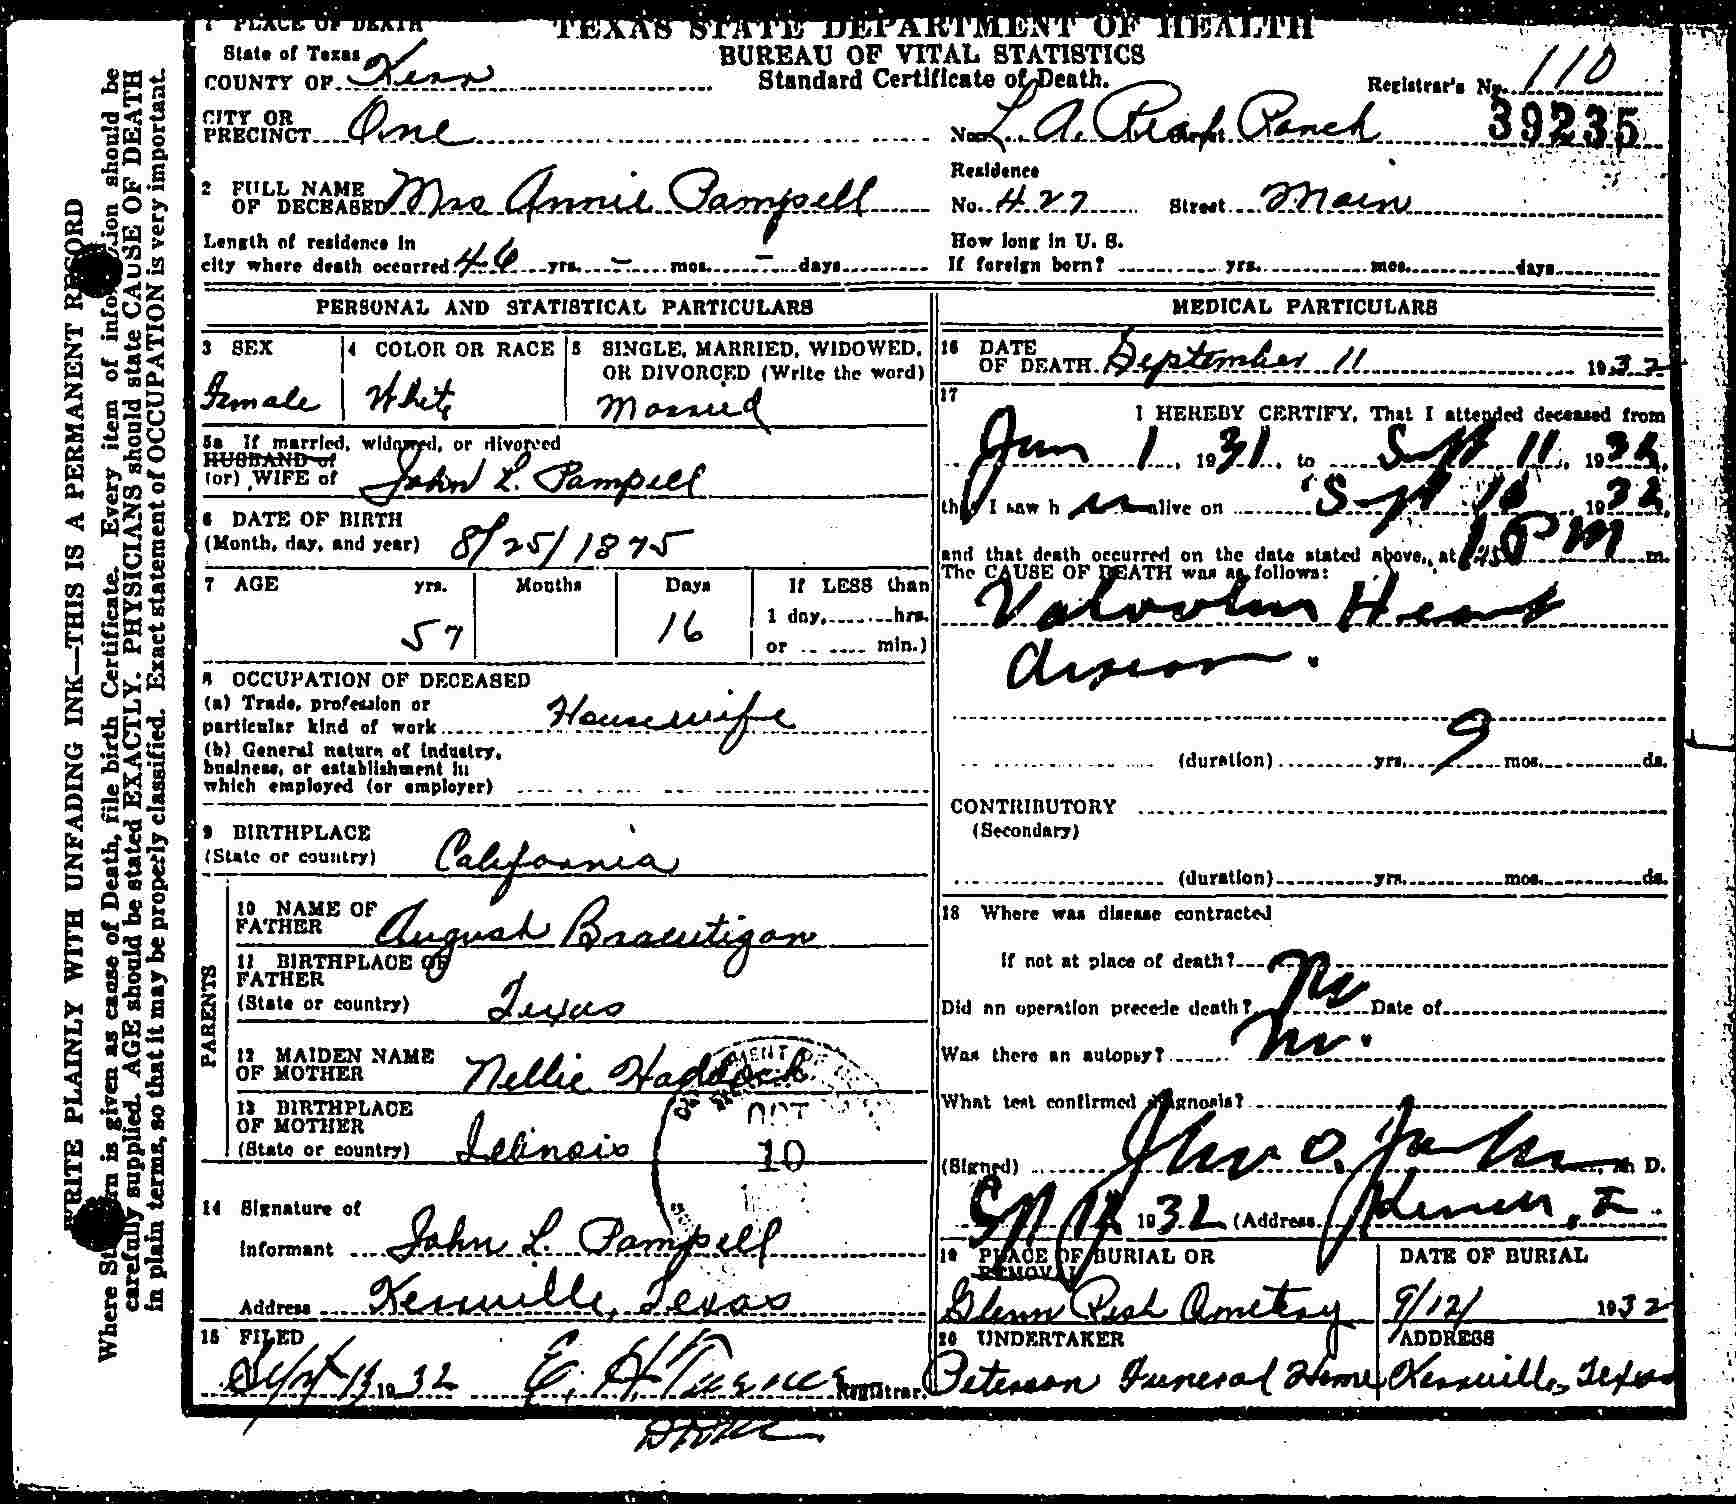 1 PLACE OF DEATH
TEXAS STATE DEPARTMENT OF HEALTH
BUREAU OF VITAL STATISTICS
Standard Certificate of Death.
State of Texas
COUNTY OF Kerr
Registrar's No. 110
39235
CITY OR
PRECINCT One
No. L. A. Ranch
2 FULL NAME
OF DECEASED Mrs Annie Pampell
Residence
No. 427 Street Main
Length of residence in
city where death occurred 46 yrs. - mos. - days
How long in U. S.
If foreign born? yrs. mos. days
PERSONAL AND STATISTICAL PARTICULARS
3 SEX
Female
4 COLOR OR RACE
White
5 SINGLE, MARRIED, WIDOWED,
OR DIVORCED (Write the word)
Married
5a If married, widowed, or divorced
HUSBAND of
(or) WIFE of John L. Pampell
6 DATE OF BIRTH
(Month, day, and year) 8/25/1875
7 AGE yrs. Months Days If LESS than
1 day, hrs.
57 16
or min.)
8 OCCUPATION OF DECEASED
(a) Trade, profession or
particular kind of work Housewife
(b) General nature of industry,
business, or establishment in
which employed (or employer)
9 BIRTHPLACE
(State or country) California
PARENTS
10 NAME OF
FATHER August Braeutigan
11 BIRTHPLACE OF
FATHER
(State or country) Texas
12 MAIDEN NAME
OF MOTHER Nellie Haddock
13 BIRTHPLACE
OF MOTHER
(State or country) Illinois
OCT
10
14 Signature of
Informant John L. Pampell
Address Kerrville, Texas
15 FILED
Sept 13 1932 E. H. Turner Registrar.
MEDICAL PARTICULARS
16 DATE
OF DEATH September 11 1932
17
I HEREBY CERTIFY, That I attended deceased from
Jan 1, 1931, to Sept 11, 1932,
that I saw h er alive on Sept 1932,
and that death occurred on the date stated above, at 1 45 PM m.
The CAUSE OF DEATH was as follows:
Valvular Heart
disease.
(duration) yrs. 9 mos. ds.
CONTRIBUTORY
(Secondary)
(duration) yrs. mos. ds.
18 Where was disease contracted
if not at place of death?
Did an operation precede death? No Date of
Was there an autopsy? No.
What test confirmed diagnosis?
(Signed) M. D.
1932 (Address
19 PLACE OF BURIAL OR
REMOVAL
Glenn Rest Cemetery
DATE OF BURIAL
9/12/ 1932
20 UNDERTAKER
Peterson Funeral Home
ADDRESS
Kerrville, Texas
WRITE PLAINLY WITH UNFADING INK—THIS IS A PERMANENT RECORD
Where is given as cause of Death, file birth Certificate. Every item of information should be
carefully supplied. AGE should be stated EXACTLY. PHYSICIANS should state CAUSE OF DEATH
in plain terms, so that it may be properly classified. Exact statement of OCCUPATION is very important.